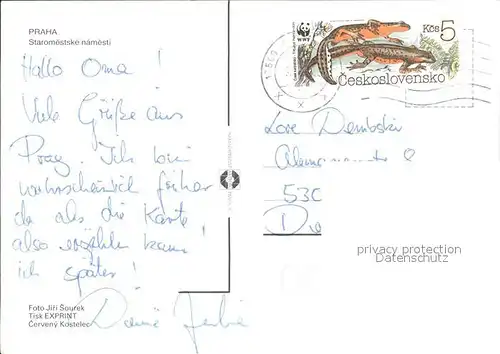 PRAHA
Staroměstské náměstí
Hallo Oma!
Viele Grüße aus
Prag. Ich bin
wahrscheinlich früher
da als die Karte
also erzählen kann
ich später!
Deine
Foto Jiří Šourek
Tisk EXPRINT
Červený Kostelec
WWF
Kčs 5
Československo
Love Dembski
530
privacy protection
Datenschutz